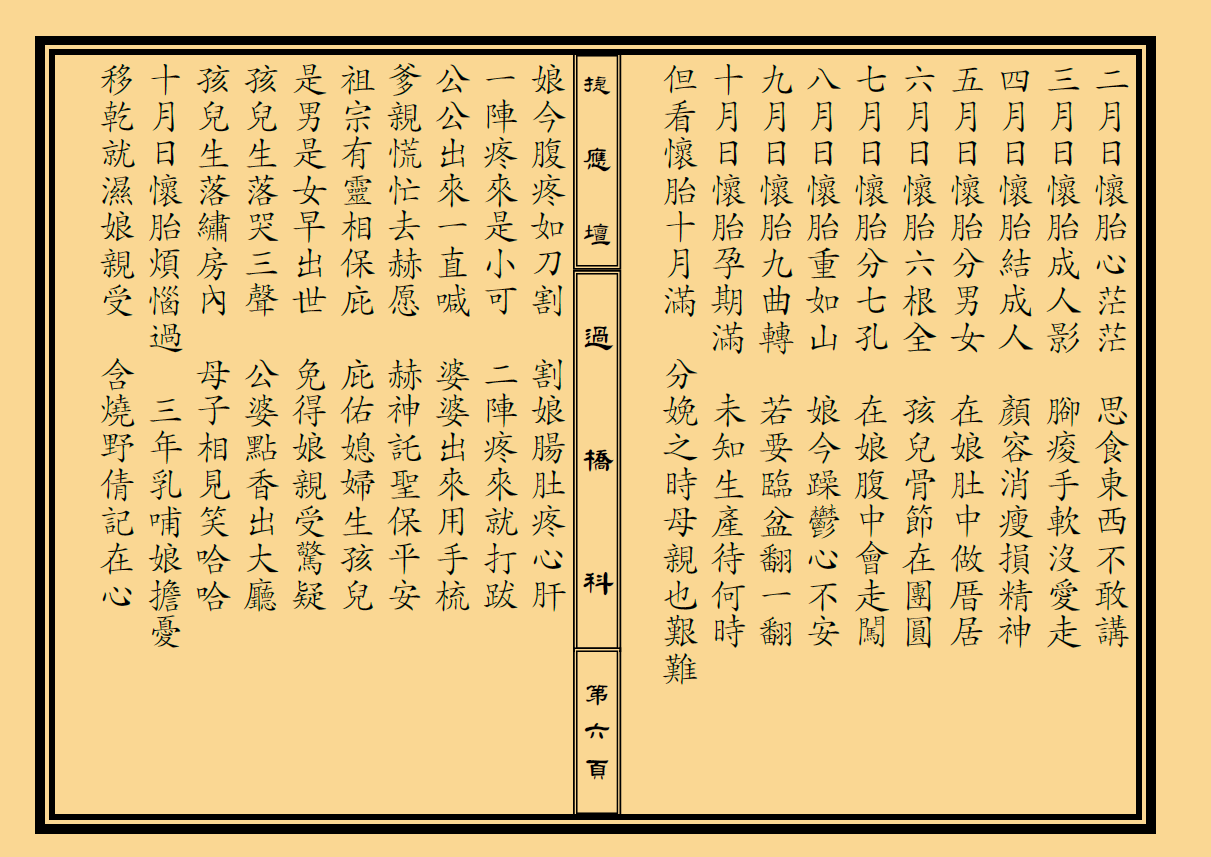 二月日懷胎心茫茫　思食東西不敢講
三月日懷胎成人影　腳痠手軟沒愛走
四月日懷胎結成人　顏容消瘦損精神
五月日懷胎分男女　在娘肚中做厝居
六月日懷胎六根全　孩兒骨節在團圓
七月日懷胎分七孔　在娘腹中會走闖
八月日懷胎重如山　娘今躁鬱心不安
九月日懷胎九曲轉　若要臨盆翻一翻
十月日懷胎孕期滿　未知生產待何時
但看懷胎十月滿　分娩之時母親也艱難
捷應壇
過橋科
第六頁
娘今腹疼如刀割　割娘腸肚疼心肝
一陣疼來是小可　二陣疼來就打跋
公公出來一直喊　婆婆出來用手梳
爹親慌忙去赫愿　赫神託聖保平安
祖宗有靈相保庇　庇佑媳婦生孩兒
是男是女早出世　免得娘親受驚疑
孩兒生落哭三聲　公婆點香出大廳
孩兒生落繡房內　母子相見笑哈哈
十月日懷胎煩惱過　三年乳哺娘擔憂
移乾就濕娘親受　含燒野倩記在心